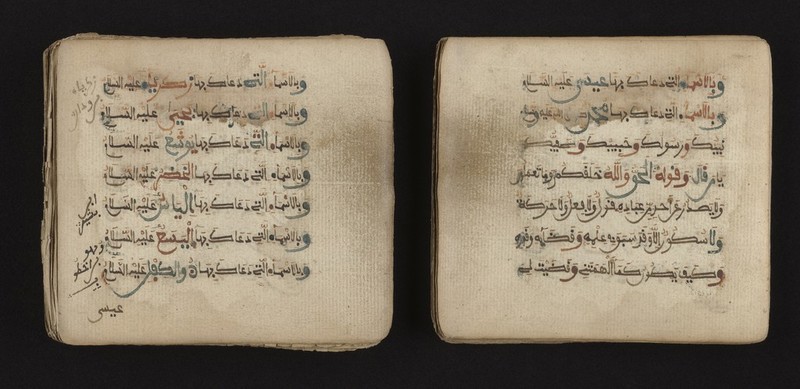 وبالاسماء التي دعاك بها زكرياء عليه السلام
وبالاسماء التي دعاك بها يحيى عليه السلام
وبالاسماء التي دعاك بها يوشع عليه السلام
وبالاسماء التي دعاك بها الخضر عليه السلام
وبالاسماء التي دعاك بها الياس عليه السلام
وبالاسماء التي دعاك بها اليسع عليه السلام
وبالاسماء التي دعاك بها ذوالكفل عليه السلام
عيسى
وبالاسماء التي دعاك بها عيسى عليه السلام
وبالاسماء التي دعاك بها محمد صلى الله عليه وسلم
نبيك ورسولك وحبيبك وصفيك
يا من قال وقوله الحق والله خلقكم وما تعملون
ولا يصدر عن احد من عباده قول ولا فعل ولا حركة
ولا سكون الا وقد سبق في علمه وقضايه وقدره
كيف يكون كما الهمتني وقضيت لي